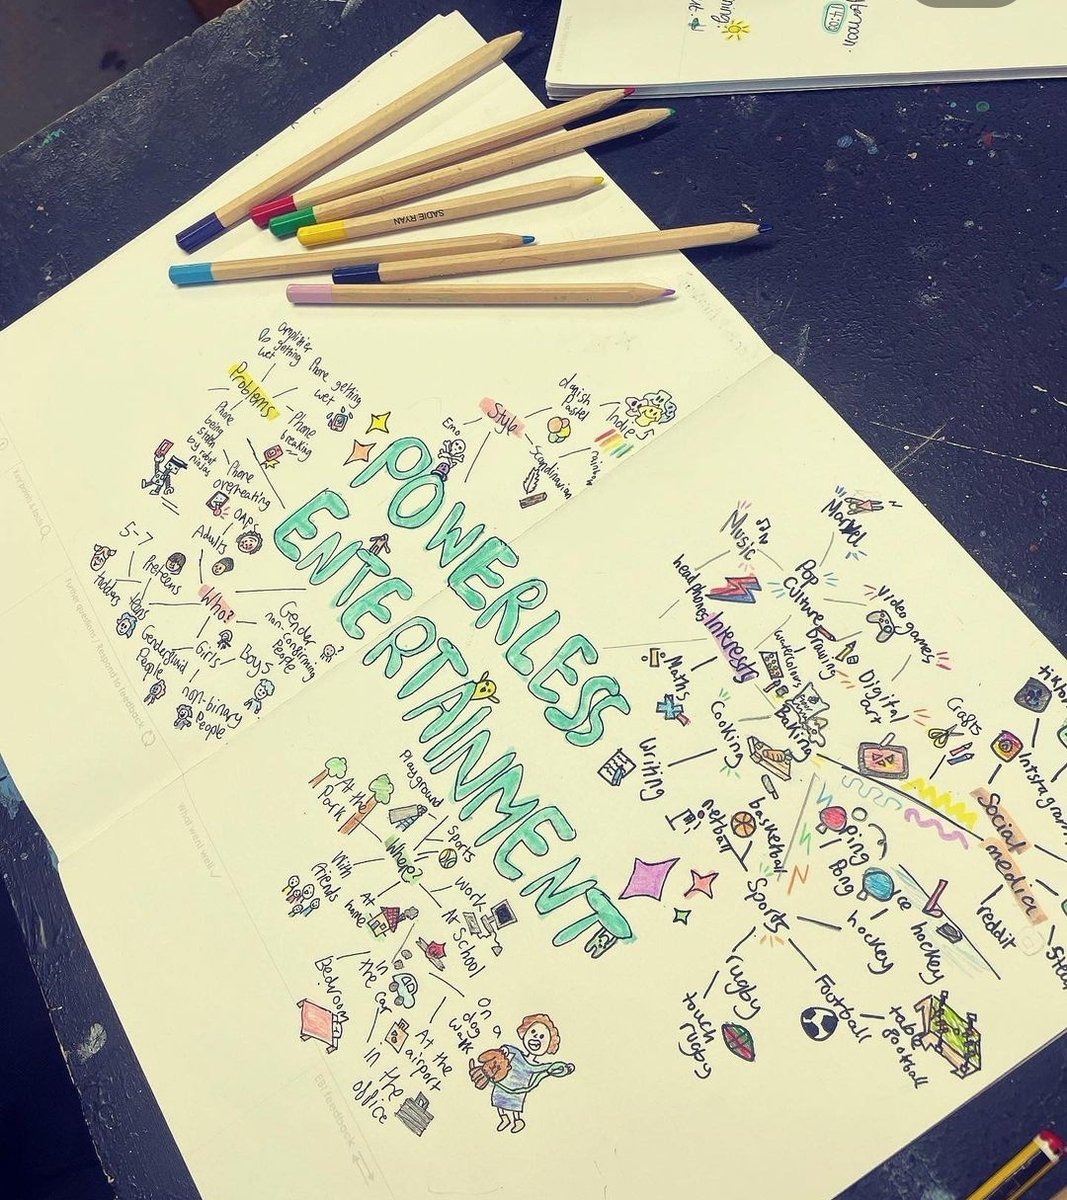 14:00
SADIE RYAN
POWERLESS
ENTERTAINMENT
Problems
amplifier
getting
wet
Phone getting
wet
Phone
breaking
Phone
overheating
Phone
being
stolen
by robot
ninjas
Style
Emo
Scandinavian
pastel
Indie
rainbow
Who?
Adults
OAPs
Preteens
5-7
toddlers
teens
Genderfluid
People
Girls
non-binary
People
Boys
Gender
non-confirming
People
Where?
At the
Park
Playground
Sports
Work
At School
With
friends
At
home
Bedroom
In
the
Car
At the
airport
In the
office
On a
dog
walk
Interests
headphones
Music
Pop
Culture
Marvel
Video games
Drawing
watercolours
Digital
art
Crafts
Maths
Writing
Cooking
Baking
Sports
netball
basketball
Ping
Pong
hockey
Ice
hockey
rugby
touch
rugby
Football
table
football
Social
media
Intstagram
reddit
What went well
EBI feedback